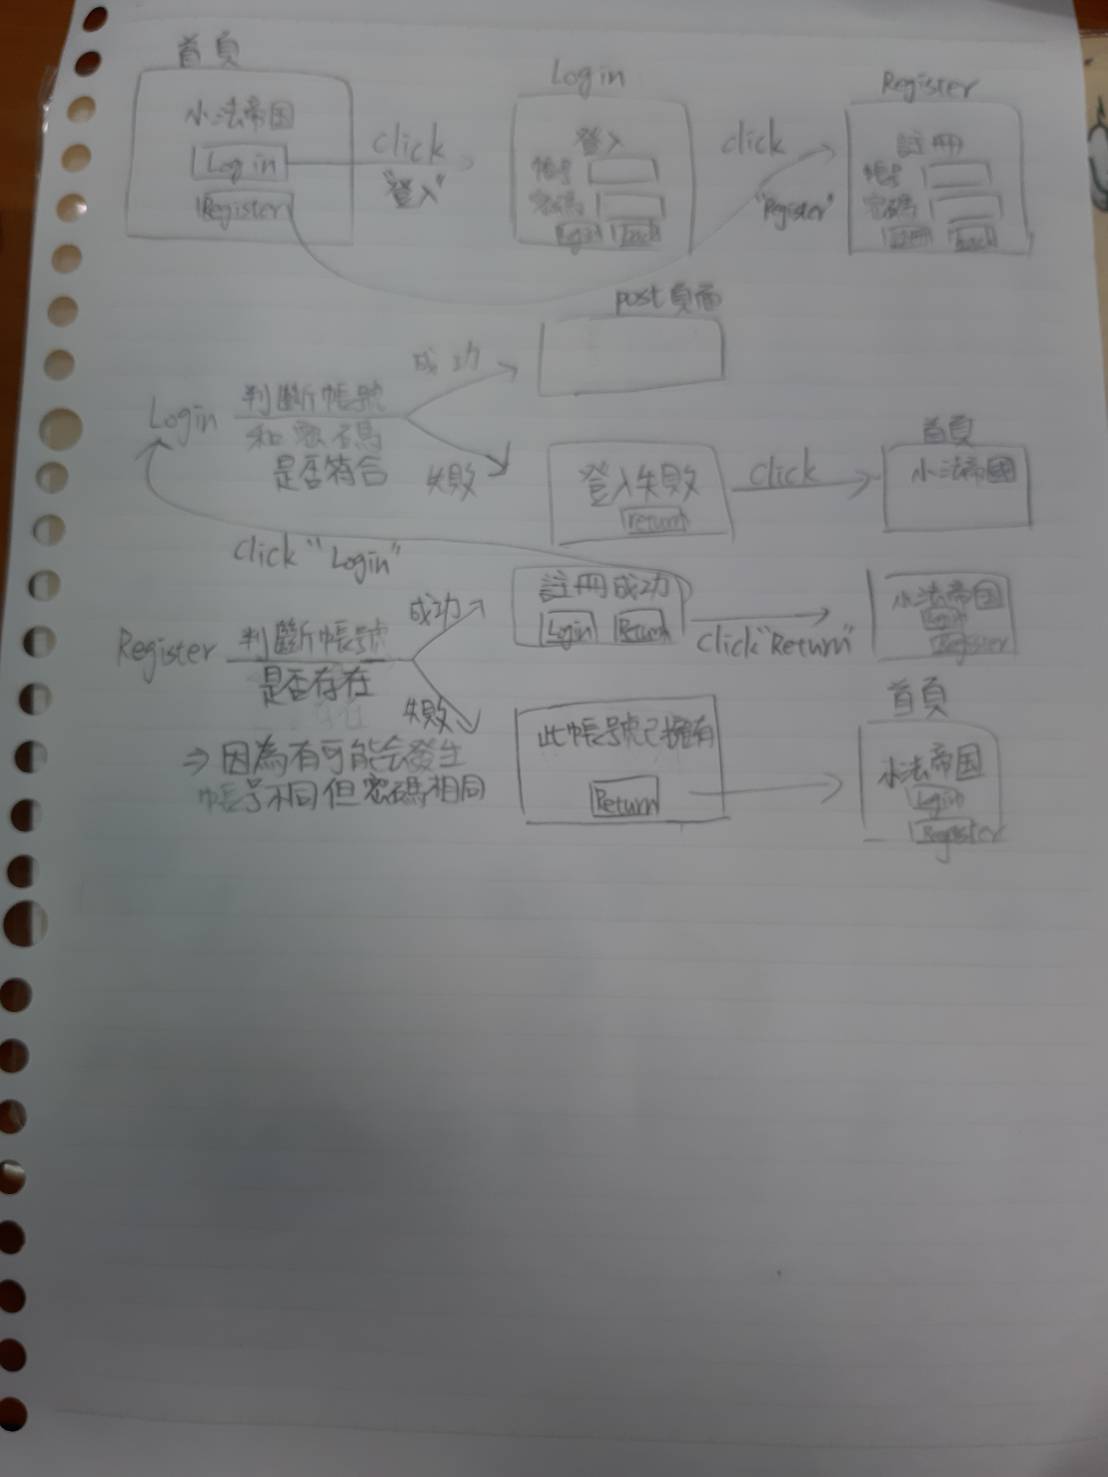 首頁
小法帝国
Log in
Register
click
"登入"
Log in
登入
帳号
密碼
Login back
click
"Register"
Register
註冊
帳号
密碼
註冊 back
post頁面
Login
判斷帳號
和密碼
是否符合
成功
失敗
登入失敗
return
click
首頁
小法帝國
click "Login"
Register
判斷帳號
是否存在
成功
失敗
註冊成功
Login Return
click "Return"
小法帝国
Login
Register
⇒ 因為有可能会發生
帳号不同但密碼相同
此帳號已擁有
Return
首頁
小法帝国
Login
Register